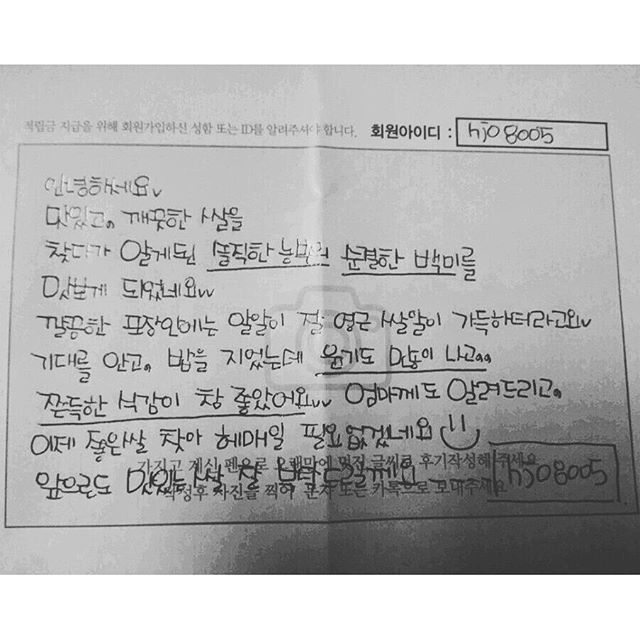 적립금 지급을 위해 회원가입하신 성함 또는 ID를 알려주셔야 합니다. 회원아이디 : hj08005
안녕하세요
맛있고, 깨끗한 쌀을
찾다가 알게된 솔직한농부의 순결한 백미를
맛보게 되었네요
깔끔한 포장안에는 알알이 잘 영근 쌀알이 가득하더라고요
기대를 안고, 밥을 지었는데 윤기도 많이 나고,
쫀득한 식감이 참 좋았어요 엄마께도 알려드리고,
이제 좋은쌀 찾아 헤매일 필요없겠네요
가지고 계신 펜으로 오랜만에 멋진 글씨로 후기작성해 주세요
앞으로도 맛있는 쌀 잘 부탁드릴게요 hj08005
작성후 사진을 찍어 문자 또는 카톡으로 보내주세요